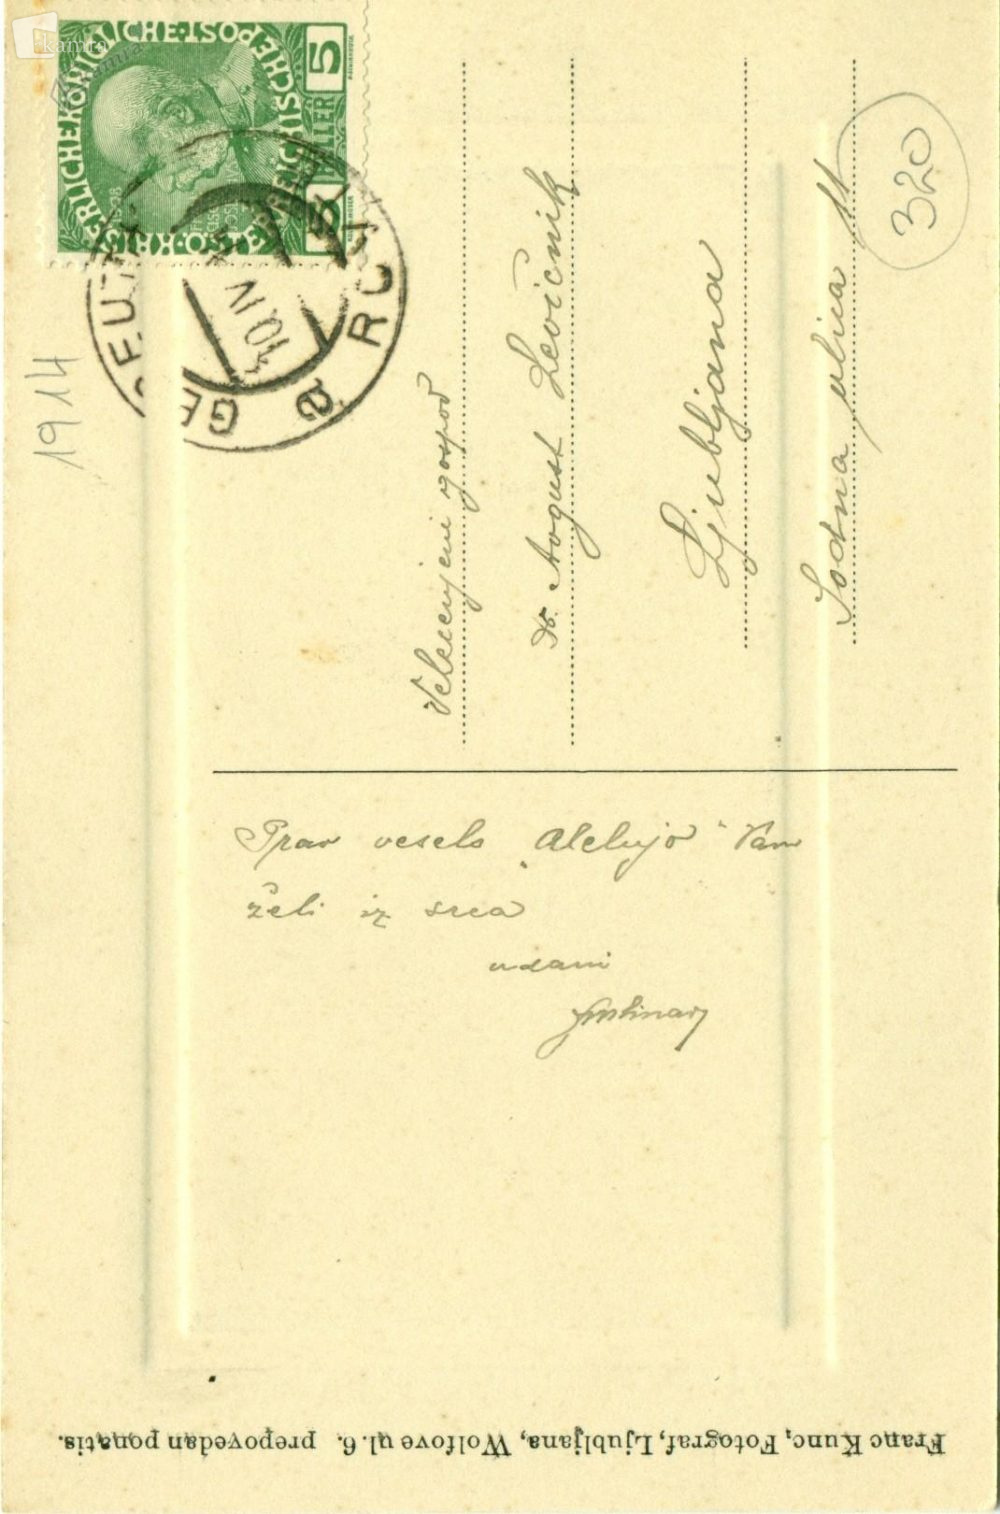 kamra
KAISERLICHE KÖNIGLICHE ÖSTERREICHISCHE POST
5 HELLER 5
10 IV
1914
320
Velecenjeni gospod
dr. Avgust Levičnik
Ljubljana
Sodna ulica 11
Prav veselo „Alelujo“ Vam
želi iz srca
udani
Franc Kunc, Fotograf, Ljubljana, Wolfove ul. 6. prepovedan ponatis.